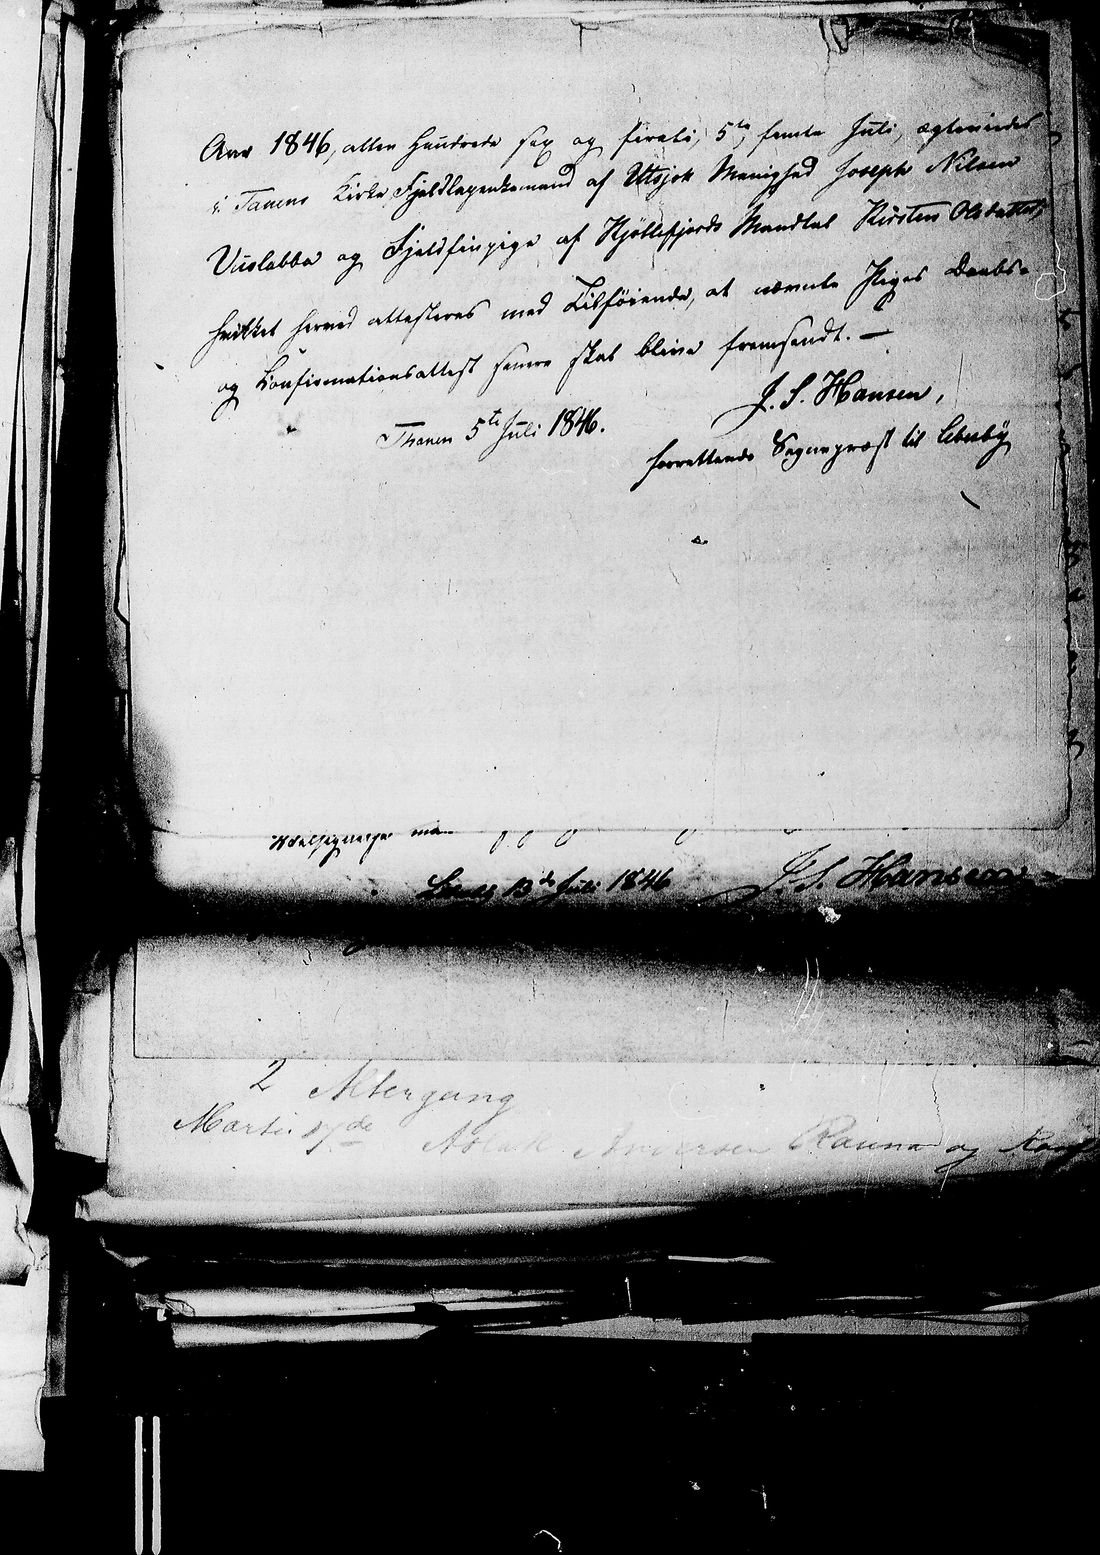 Aar 1846, atten hundrede sex og fireti, 5te, femte Juli, ægteviedes
i Tanens Kirke Fjeldlappenkemand af Utsjok Menighed Joseph Nilsen
Vuolabba og Fjeldfinpige af Kjöllefjords Mandtal Kirsten Olsdatter,
hvilket herved attesteres med Tilföiende, at nævnte Piges Daabs-
og Konfirmationsattest senere skal blive fremsendt. —
J. S. Hansen,
Thanen 5te Juli 1846.
forrettende Sognepræst til Lebesby
13de Juli 1846 J. S. Hansen
2 Altergang
Marti 17de Aslak Andersen Rauna og